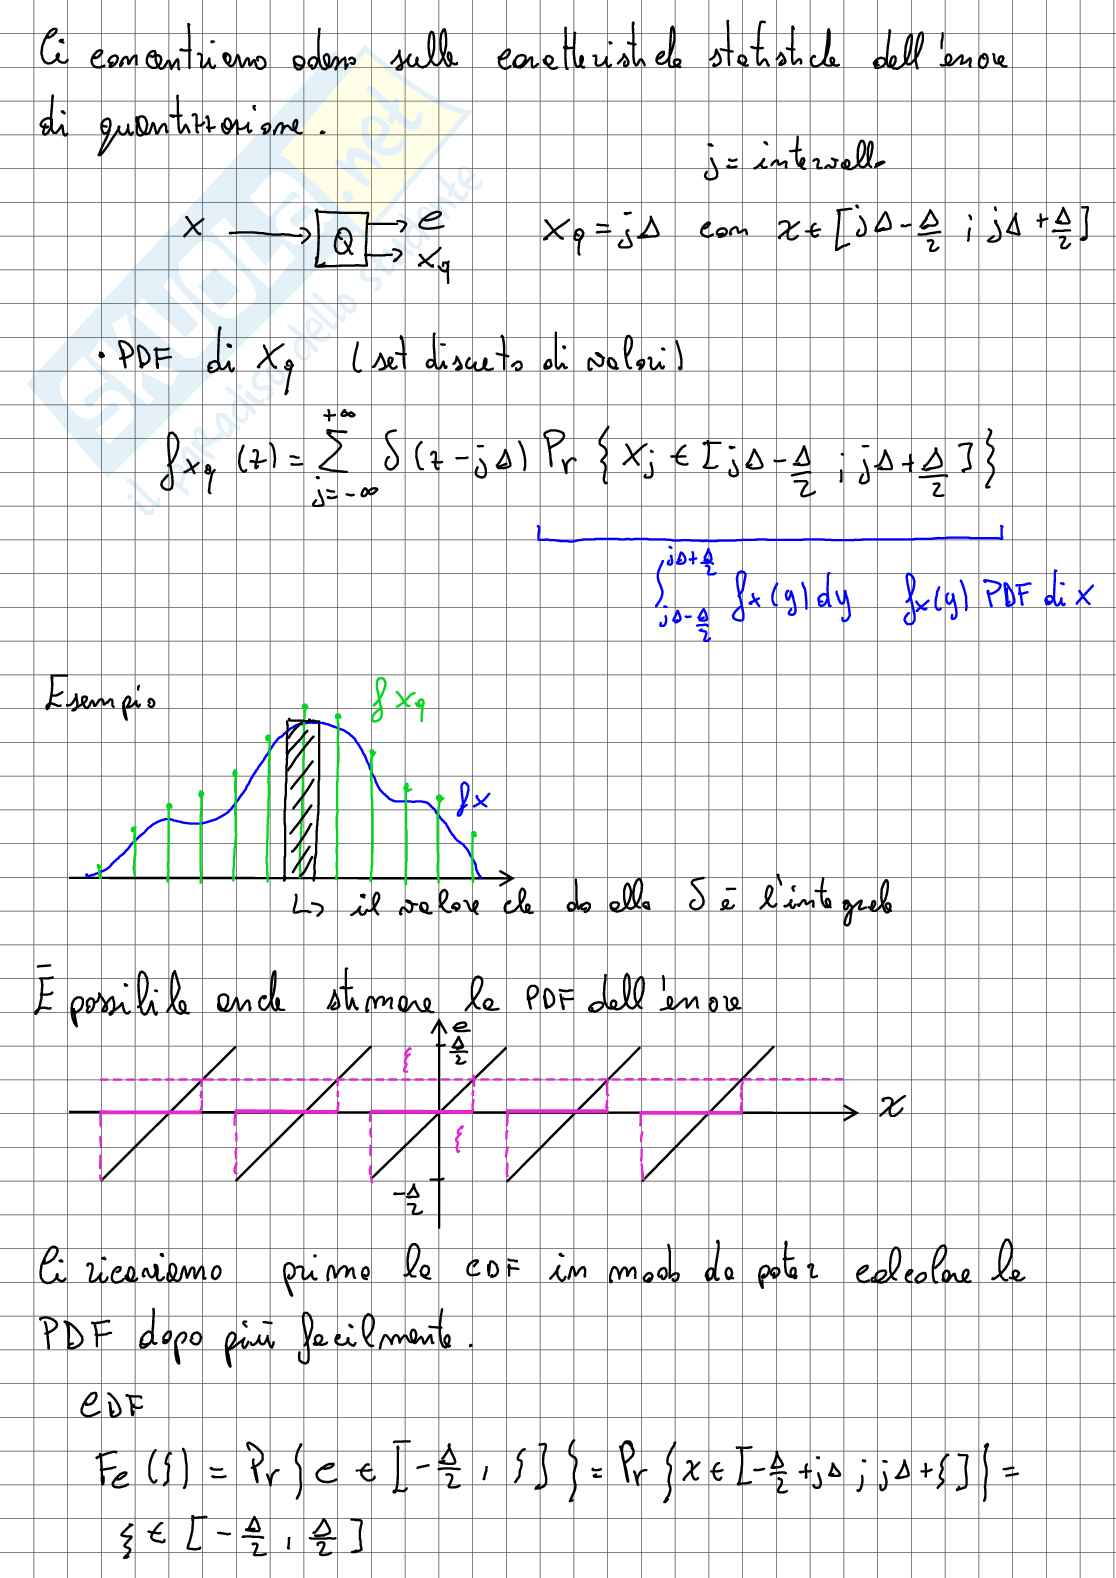 Ci concentriamo adesso sulle caratteristiche statistiche dell'errore
di quantizzazione.
j = intervallo
x → Q → e
x_q
x_q = jΔ con x ∈ [jΔ - Δ/2 ; jΔ + Δ/2]
• PDF di x_q (set discreto di valori)
f_{x_q} (z) = ∑_{j=-∞}^{+∞} δ(z - jΔ) Pr { x_j ∈ [jΔ - Δ/2 ; jΔ + Δ/2] }
∫_{jΔ-Δ/2}^{jΔ+Δ/2} f_x(y) dy f_x(y) PDF di x
Esempio
f_{x_q}
f_x
↳ il valore che do alla δ è l'integrale
È possibile anche stimare la PDF dell'errore
e
Δ/2
ξ
x
ξ
-Δ/2
Ci ricaviamo prima la CDF in modo da poter calcolare la
PDF dopo più facilmente.
CDF
F_e (ξ) = Pr { e ∈ [-Δ/2 , ξ] } = Pr { x ∈ [-Δ/2 + jΔ ; jΔ + ξ] } =
ξ ∈ [-Δ/2 , Δ/2]
SKUOLA.net
il paradiso dello studente